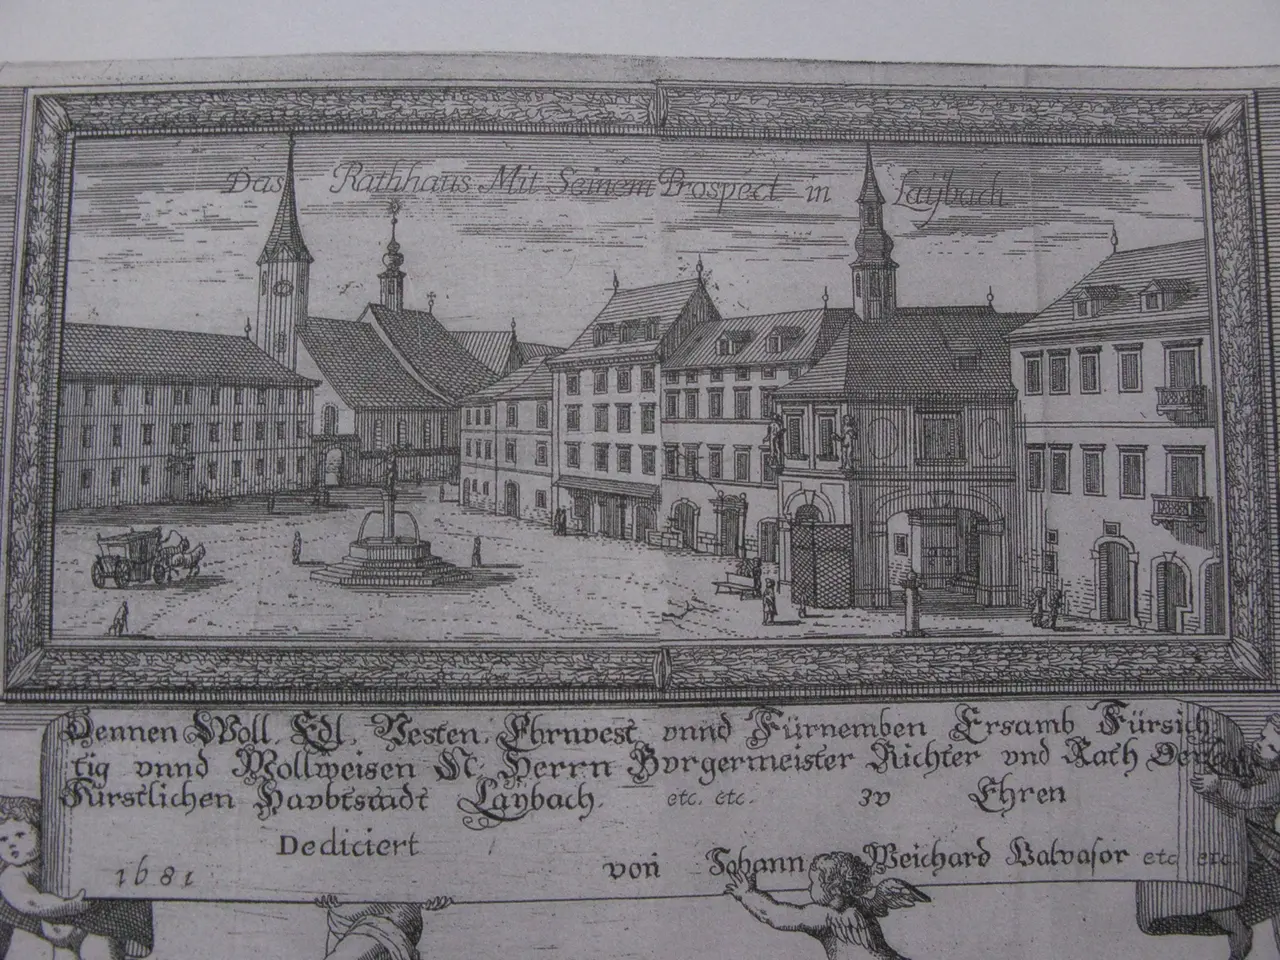 Das Rathhaus Mit Seinem Prospect in Laÿbach
Dennen Woll. Edl. Vesten. Ehrnvest vnnd Fürnemben Ersamb Fürsich-
tig vnnd Wollweisen N. Herrn Bvrgermeister Richter vnd Rath Der
Fürstlichen Havbtstadt Laÿbach. etc. etc. zv Ehren
Dediciert
1681 von Johann Weichard Valvasor etc. etc.